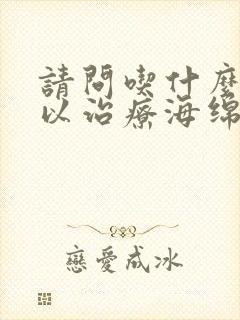 請問喫什麼
以治療海绵
戀愛成冰